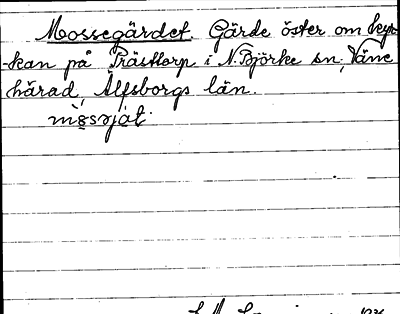 Mossegärdet. Gärde öster om kyr-
kan på Prästtorp i N. Björke sn, Väne
härad, Älfsborgs län.